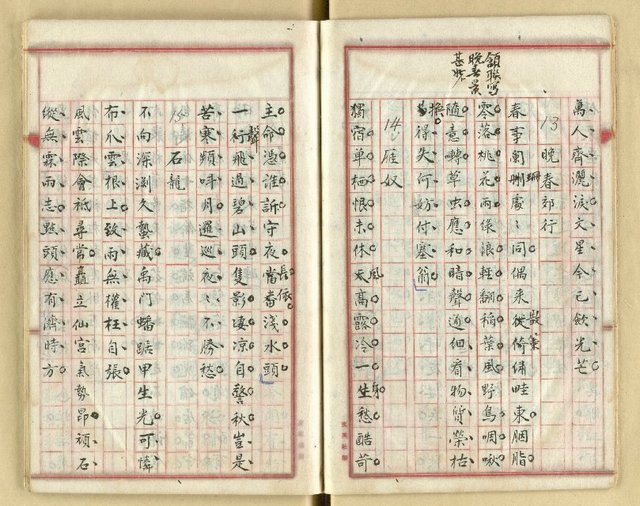 萬人齊灑淚文星今已斂光芒
頷聯寫
晚春景
甚妙
13 晚春郊行
春事闌珊處〻同偶來散策倚傭畦東胭脂
零落桃花雨綠浪輕翻稻葉風野鳥啁啾
隨意囀草虫應和晴聲通細看物質榮枯
換得失何妨付塞翁
14 雁奴
獨宿单栖恨未休天高露冷一生愁酷苛
主命憑誰訴守夜當番淺水頭
一聲飛過碧山頭隻影淒凉自警秋豈是
苦寒頻呼月邏巡夜〻不勝愁
15 石龍
不向深淵久蟄藏禹門蟠踞甲生光可憐
布心雲根上致雨無權枉自張
風雲際會祗尋常矗立仙宮氣勢昂頑石
縱無霖雨志點頭應有濟時方